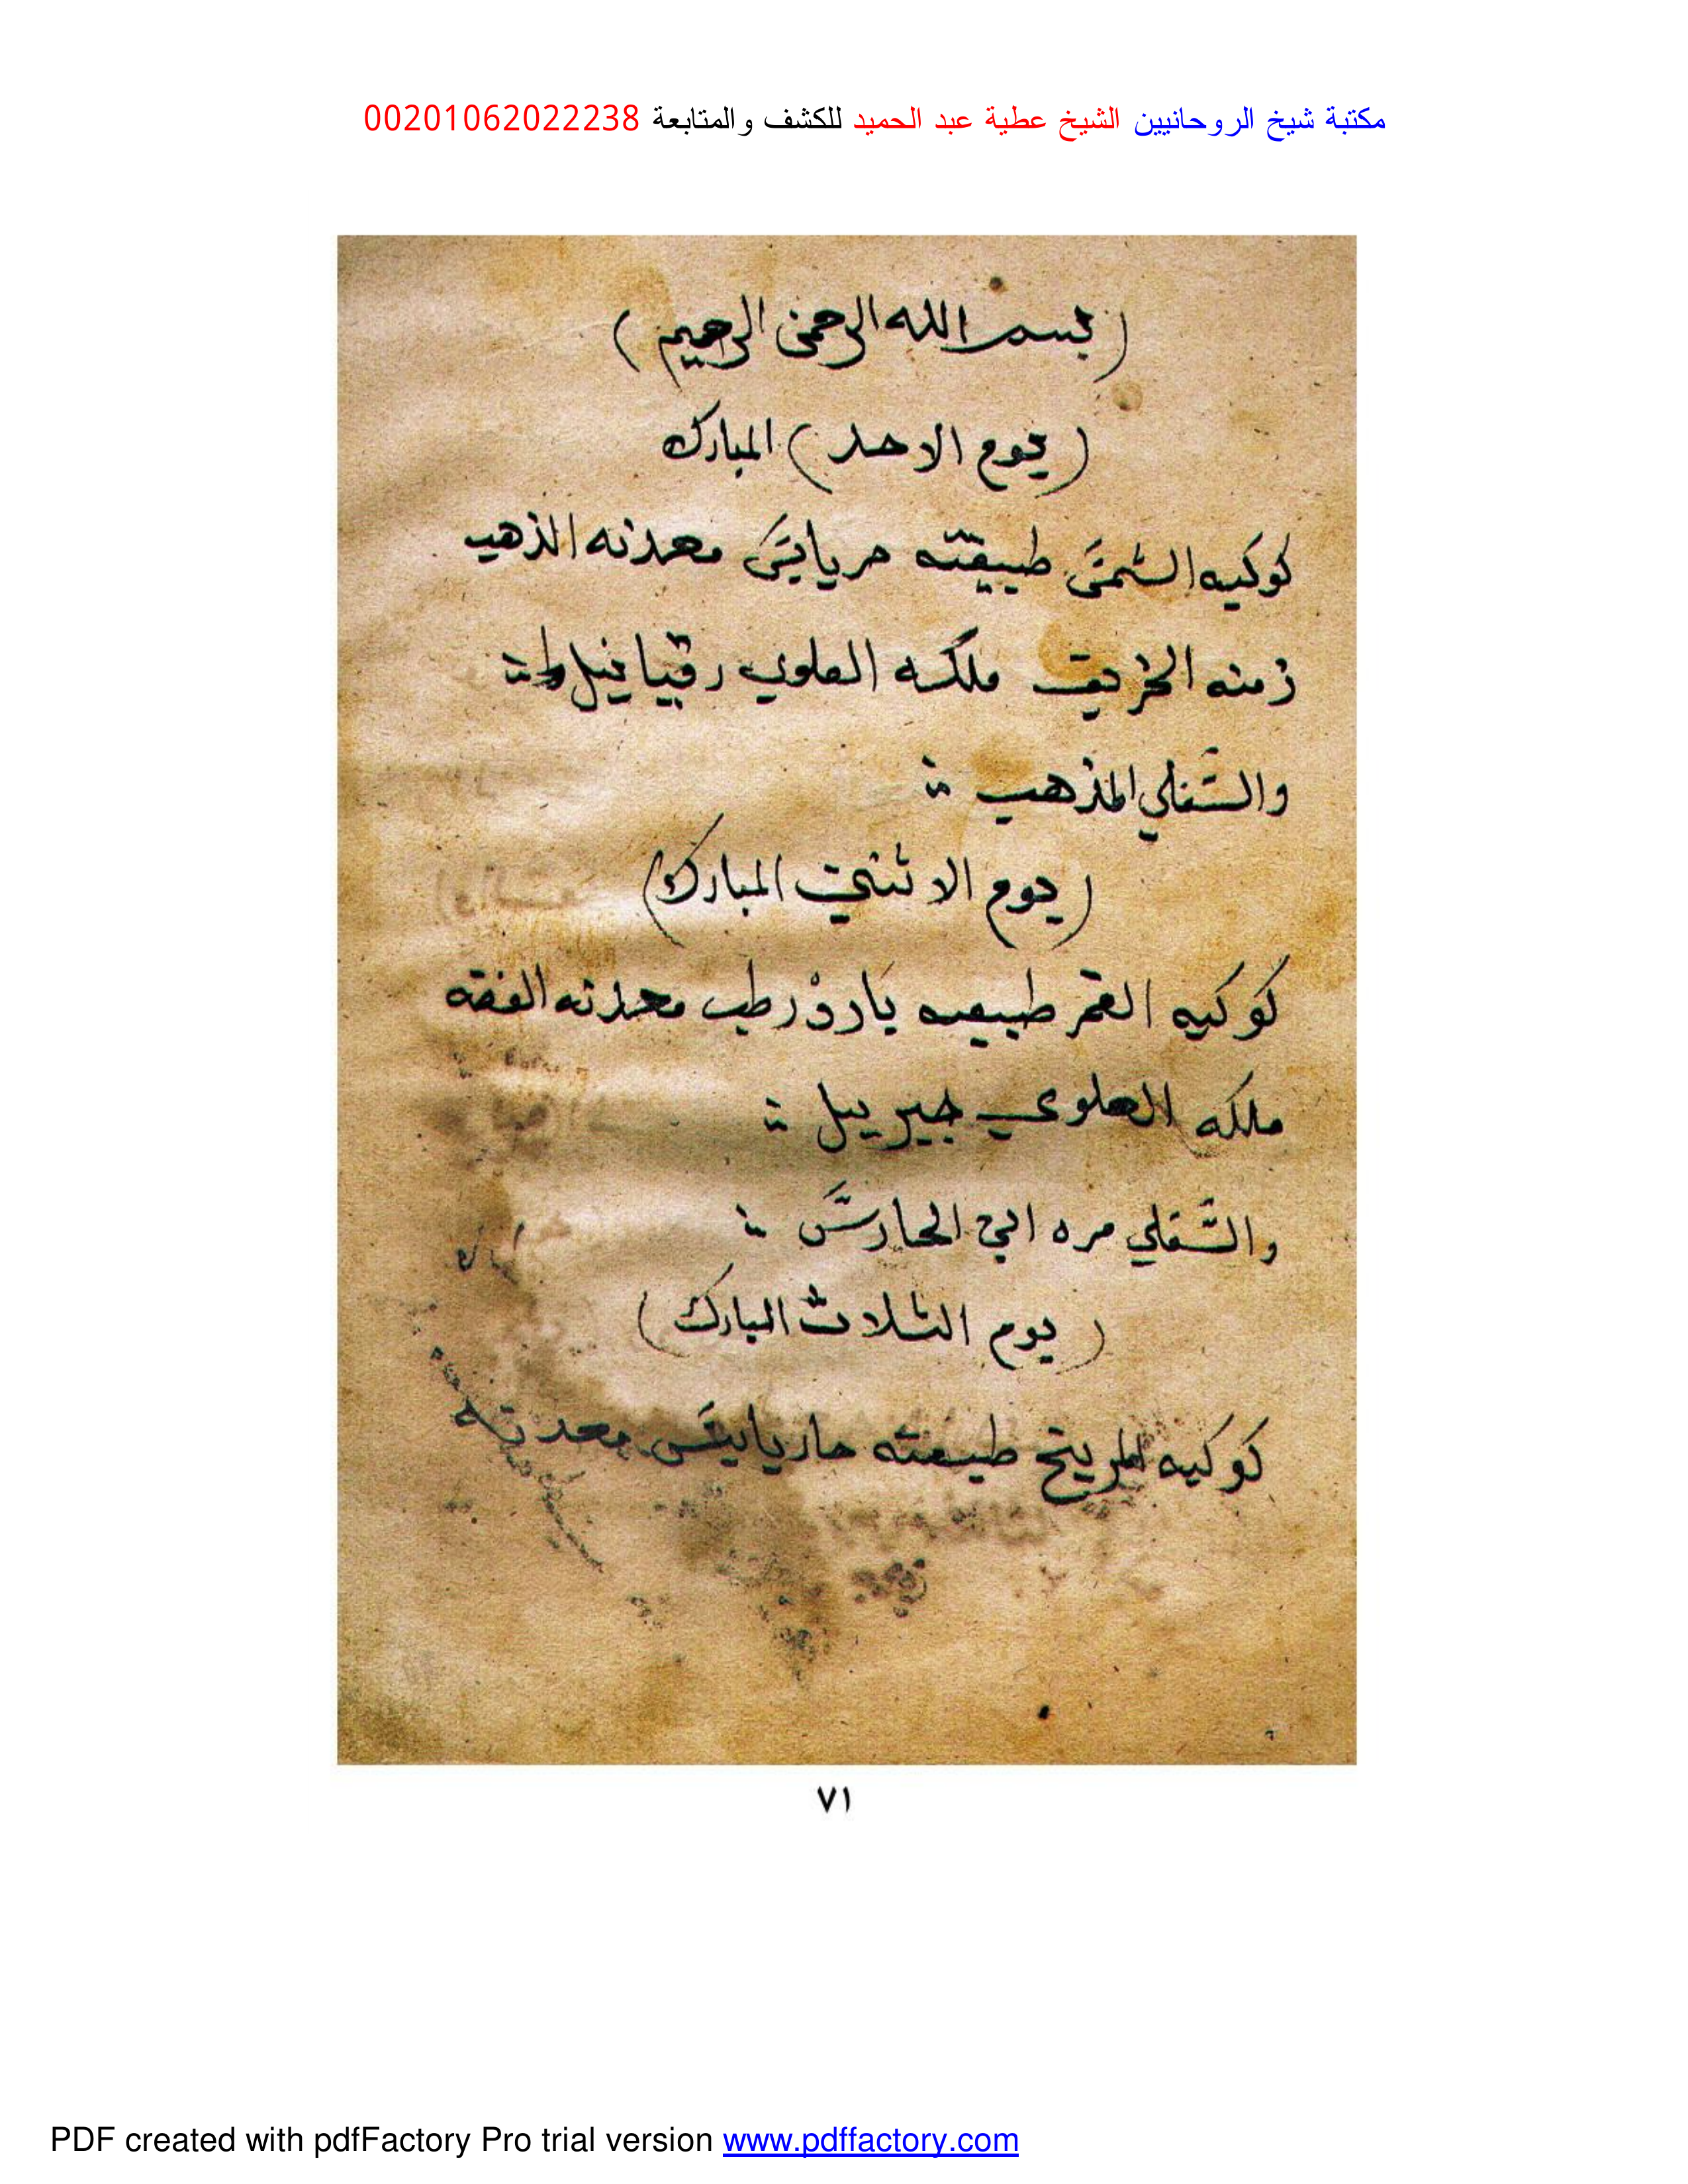 مكتبة شيخ الروحانيين الشيخ عطية عبد الحميد للكشف والمتابعة 00201062022238
(بسم الله الرحمن الرحيم)
(يوم الاحد) المبارك
كوكبه الشمس طبيعته حر يابس معدنه الذهب
زمنه الخريف ملكه العلوي رقياييل
والسفلي المذهب
(يوم الاثنين المبارك)
كوكبه القمر طبيعته بارد رطب معدنه الفضه
ملكه العلوي جبرييل
والسفلي مره ابي الحارس
(يوم الثلاث المبارك)
كوكبه المريخ طبيعته حار يابس معدنه
٧١
PDF created with pdfFactory Pro trial version www.pdffactory.com